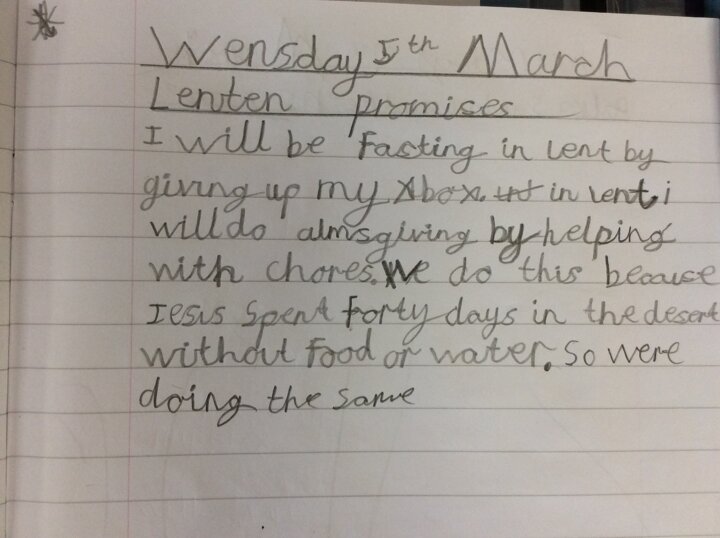 Wensday 5th March
Lenten promises
I will be fasting in lent by
giving up my Xbox. in lent, i
will do almsgiving by helping
with chores. We do this because
Jesus spent forty days in the desert
without food or water. So were
doing the same